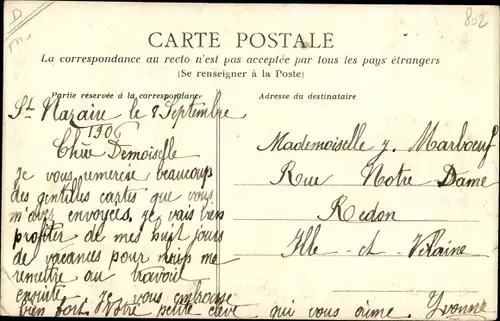 D
m.
802
CARTE POSTALE
La correspondance au recto n'est pas acceptée par tous les pays étrangers
(Se renseigner à la Poste)
Partie réservée à la correspondance
St Nazaire le 8 Septembre
1906
Chère Demoiselle
je vous remercie beaucoup
des gentilles cartes que vous
m'avez envoyées, je vais bien
profiter de mes huit jours
de vacances pour me
remettre au travail
ensuite. Je vous embrasse
bien fort. Votre petite élève qui vous aime. Yvonne
Adresse du destinataire
Mademoiselle y. Marboeuf
Rue Notre Dame
Redon
Ille-et-Vilaine